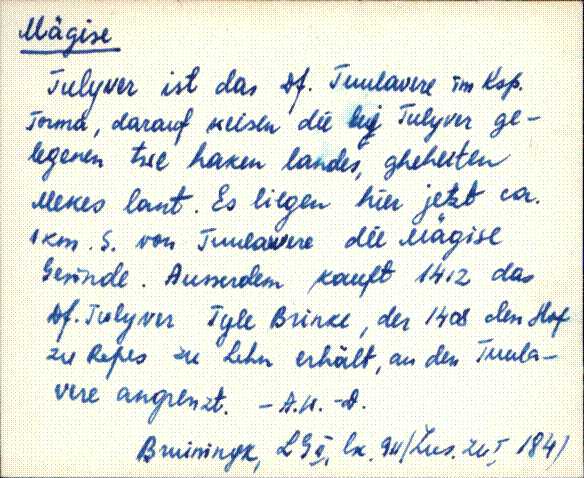 Mägise
Tulyver ist das Df. Tuulavere im Ksp.
Torma, darauf weisen die bij Tulyver ge-
legenen twe haken landes, gheheten
Mekes lant. Es liegen hier jetzt ca.
1 km. S. von Tuulavere die Mägise
Gesinde. Ausserdem kauft 1412 das
Df. Tulyver Tyle Brinke, der 1408 den Hof
zu Repes zu Lehn erhält, an den Tuula-
vere angrenzt. - A.W. -D.
Bruiningk, LGU I, lk. 94 (Lus. zu I, 184)